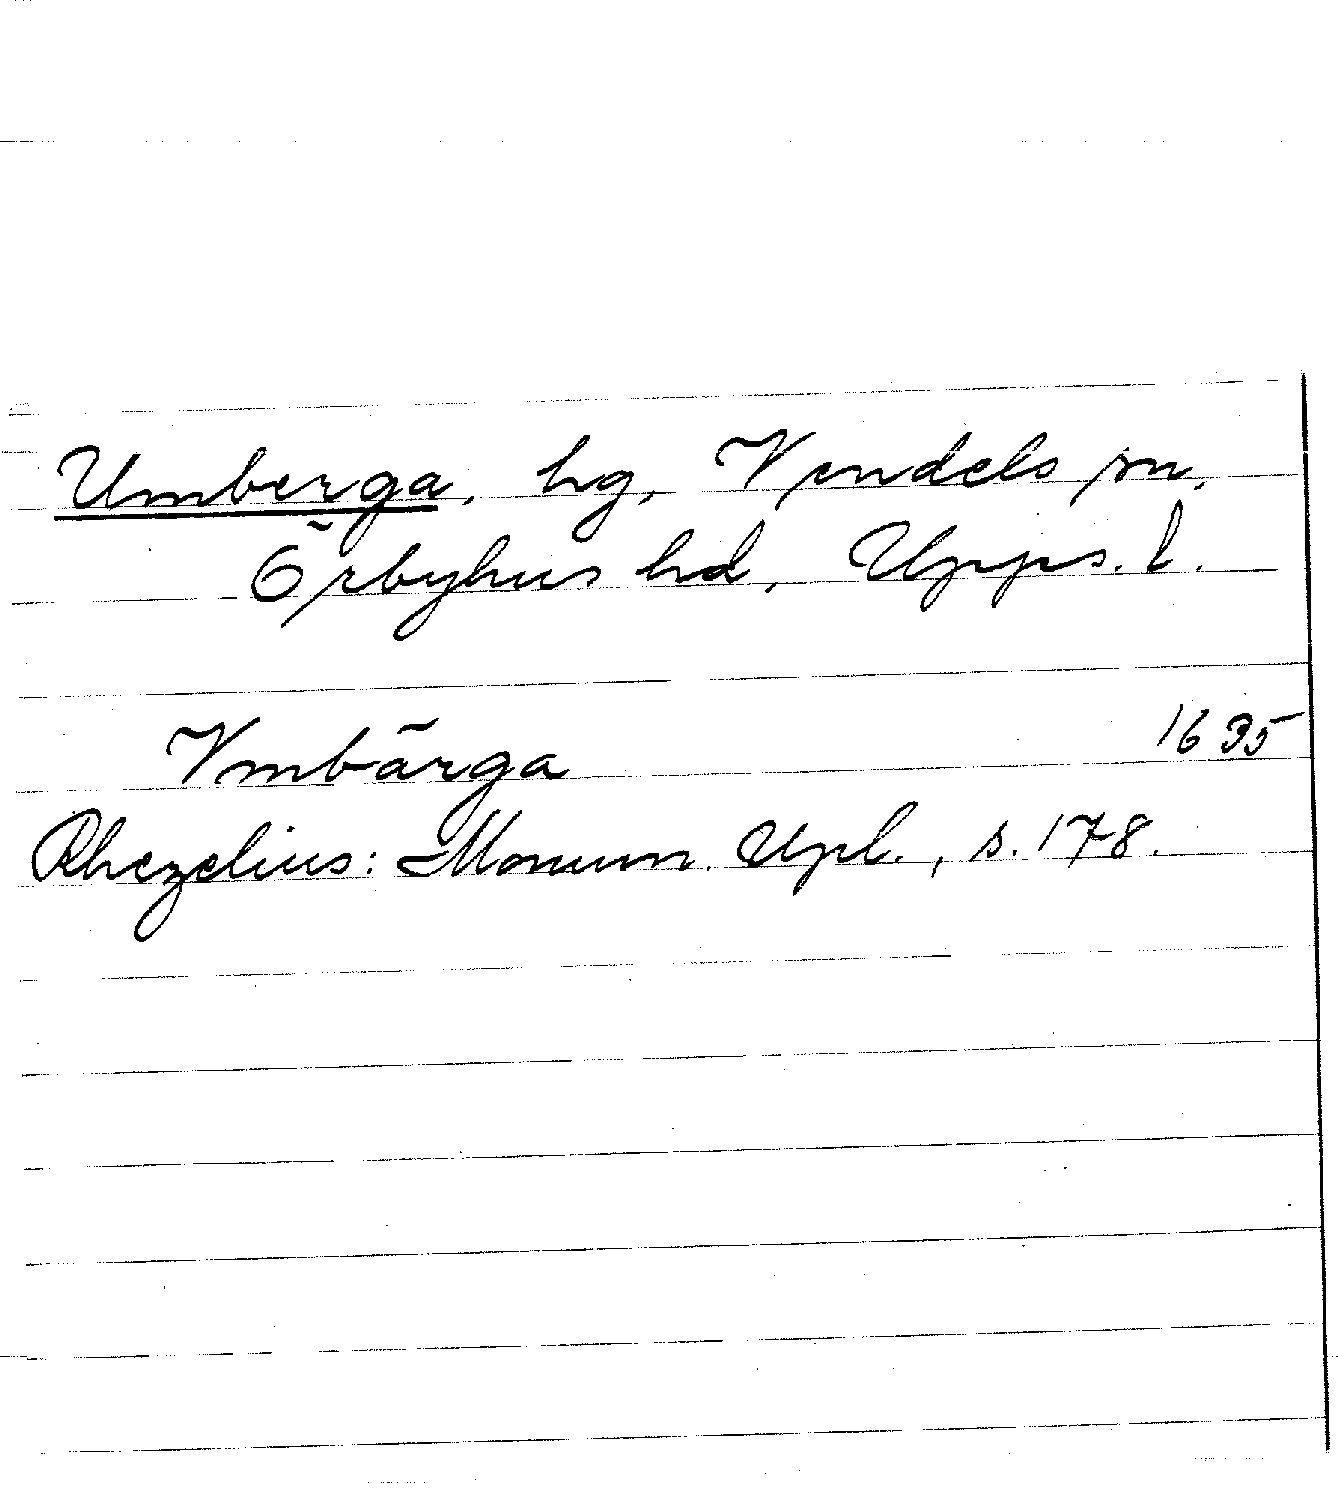 Umberga, hg, Vendels sn,
Örbyhus hd, Upps. l.
Vmbärga 1635
Rhezelius: Monum. Upl., s. 178.